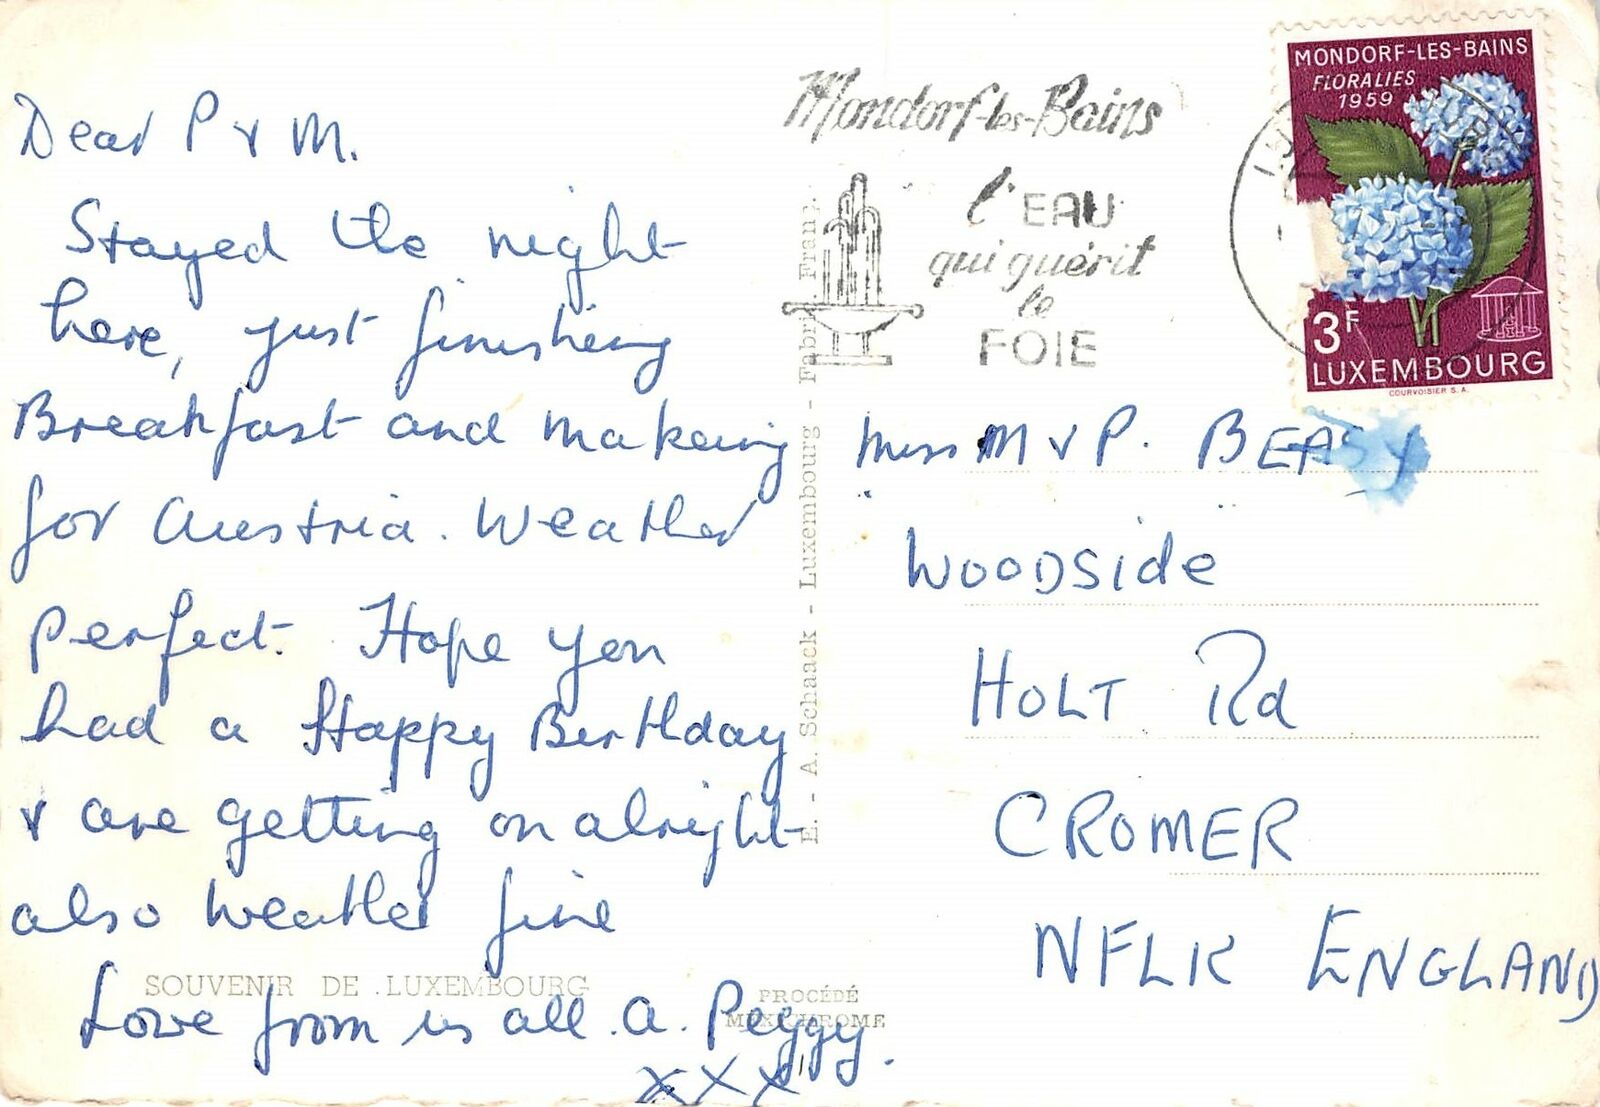 Dear P & M.
Stayed the night
here, just finishing
Breakfast and making
for Austria. Weather
perfect. Hope you
had a Happy Birthday
& are getting on alright
also weather fine
Love from us all. A. Peggy.
xxx
SOUVENIR DE LUXEMBOURG
PROCÉDÉ
MEXICHROME
E. - A. Schaack - Luxembourg - Fabric. Franç.
Mondorf-les-Bains
l'EAU
qui guérit
le
FOIE
MONDORF-LES-BAINS
FLORALIES
1959
3F
LUXEMBOURG
COURVOISIER S.A.
Miss M & P. BEASY
"WOODSIDE"
HOLT Rd
CROMER
NFLK ENGLAND